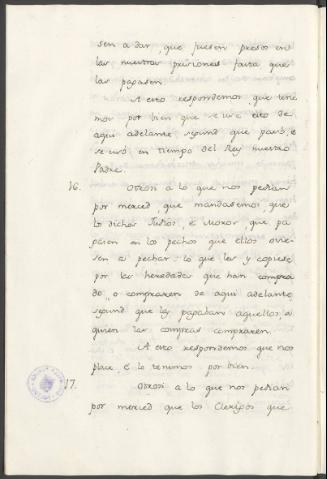 sen a dar, que fuesen presos en
las nuestras prisiones fasta que
las pagasen.
A esto respondemos, que tene
mos por bien que se use esto de
aqui adelante segund que pasó, e
se usó en tiempo del Rey nuestro
Padre.
16. Otrosi a lo que nos pedian
por merced, que mandasemos que
lo dichos Judios, e Moros, que pa
gasen en los pechos que ellos ovie
sen a pechar lo que les y copiese
por las heredades que han compra
do, o compraren de aqui adelante
segund que las pagaban aquellos a
quien las compras compraren.
A esto respondemos que nos
place e lo tenemos por bien.
17. Otrosi a lo que nos pedian
por merced que los Clerigos que